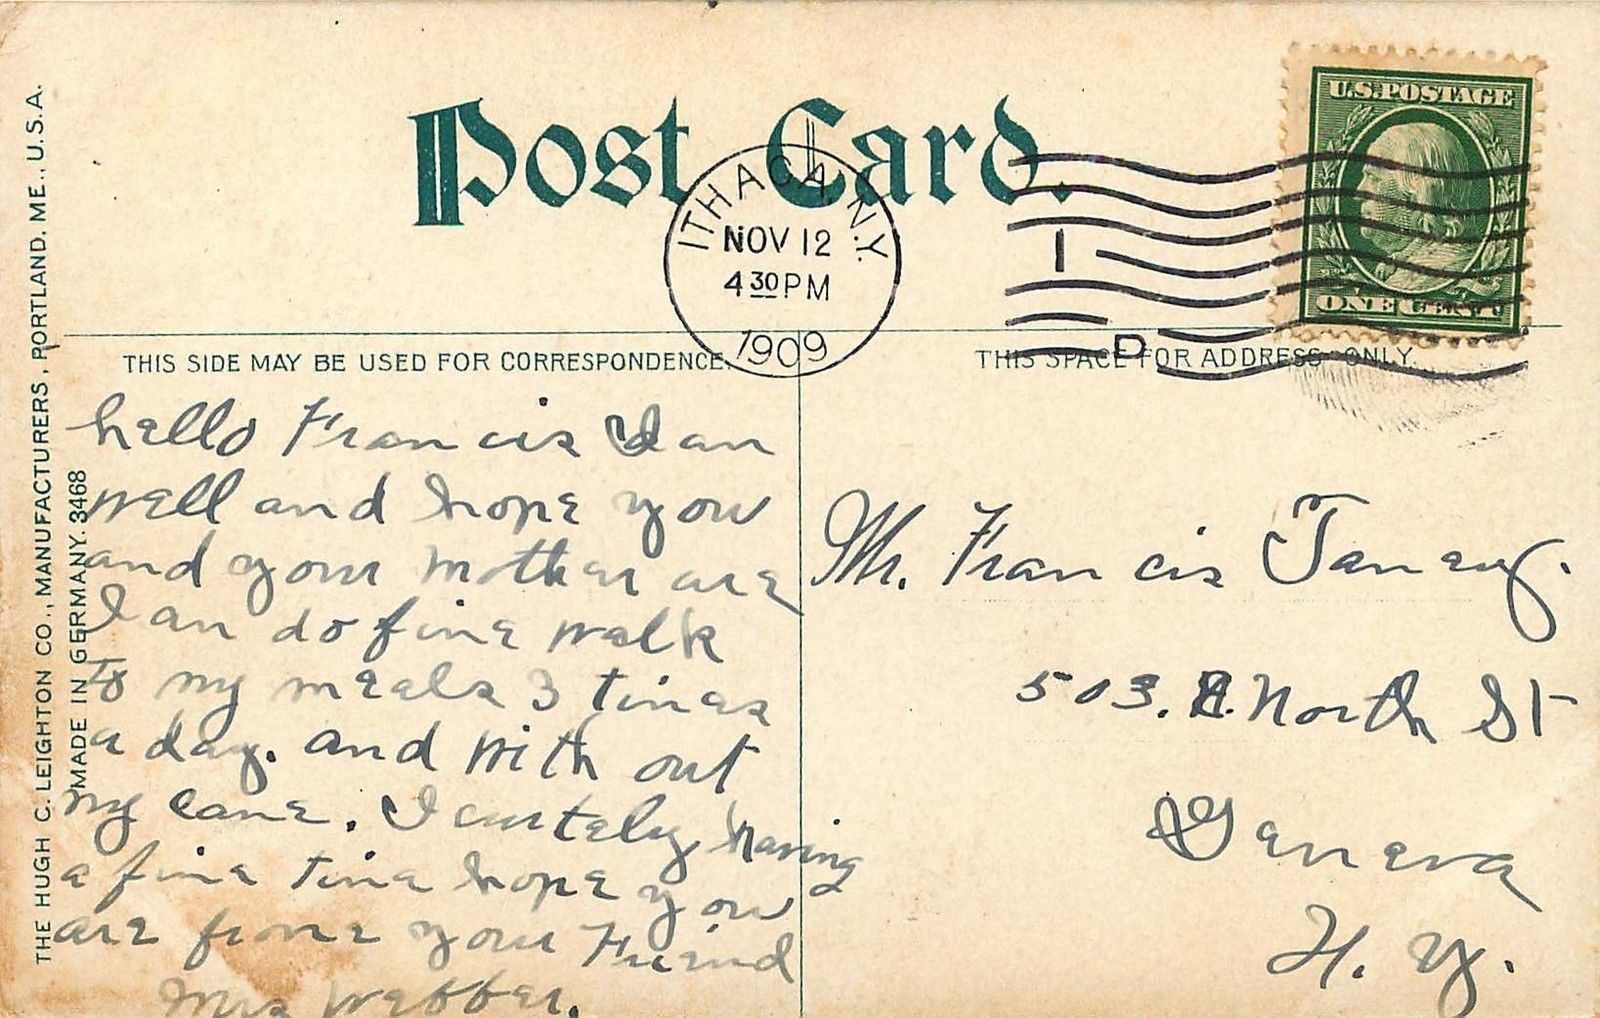 Post Card.
U.S. POSTAGE
ONE CENT
ITHACA, N.Y.
NOV 12
4 30 PM
1909
1
D
THIS SIDE MAY BE USED FOR CORRESPONDENCE.
THIS SPACE FOR ADDRESS ONLY.
THE HUGH C. LEIGHTON CO., MANUFACTURERS, PORTLAND, ME., U.S.A.
MADE IN GERMANY. 3468
hello Francis I an
well and hope you
and your mother are
I an do fine walk
to my meals 3 tines
a day. and with out
my cane. I having
a fine tine hope you
are your Friend
Mrs Webber.
Mr. Francis Taney.
503. North St
Geneva
N. Y.